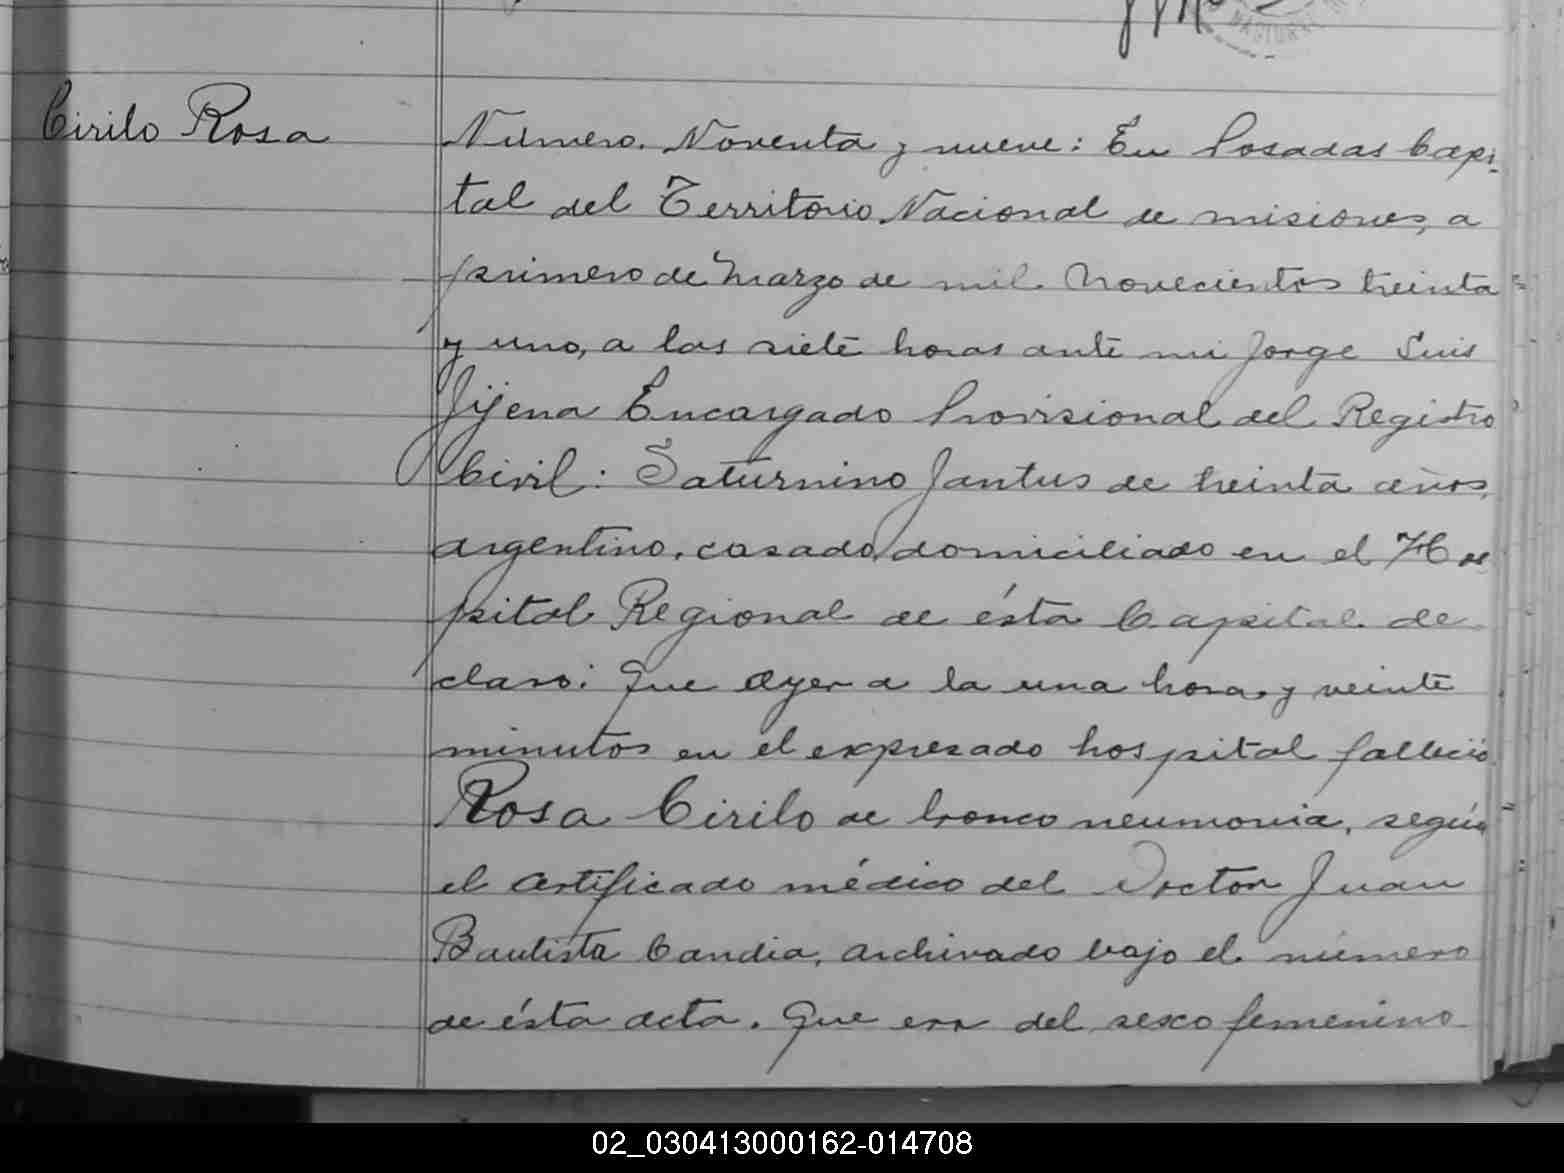 NACIONAL
Cirilo Rosa
Número. Noventa y nueve: En Posadas Capi-
tal del Territorio Nacional de misiones, a
primero de Marzo de mil novecientos treinta
y uno, a las siete horas ante mi Jorge Luis
Jijena Encargado Provisional del Registro
Civil: Saturnino Jantus de treinta años,
argentino, casado, domiciliado en el Hos
pital Regional de ésta Capital de
claro: Que ayer a la una hora y veinte
minutos en el expresado hospital falleció
Rosa Cirilo de bronco neumonia, según
el certificado médico del Doctor Juan
Bautista Candia, archivado bajo el número
de ésta acta. Que era del sexo femenino
02_030413000162-014708